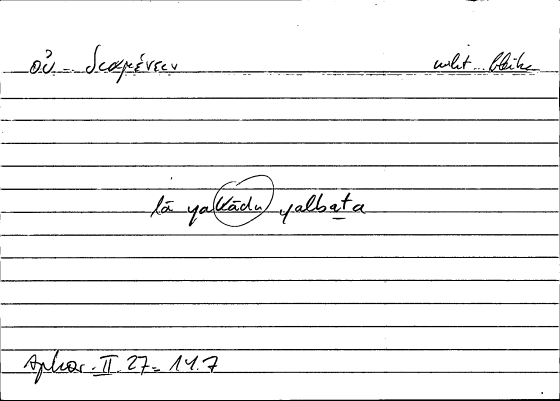 οὐ – διαμένειν nicht .. bleiben
lā yakādu yalbata
Aphor. II. 27 = 14.7